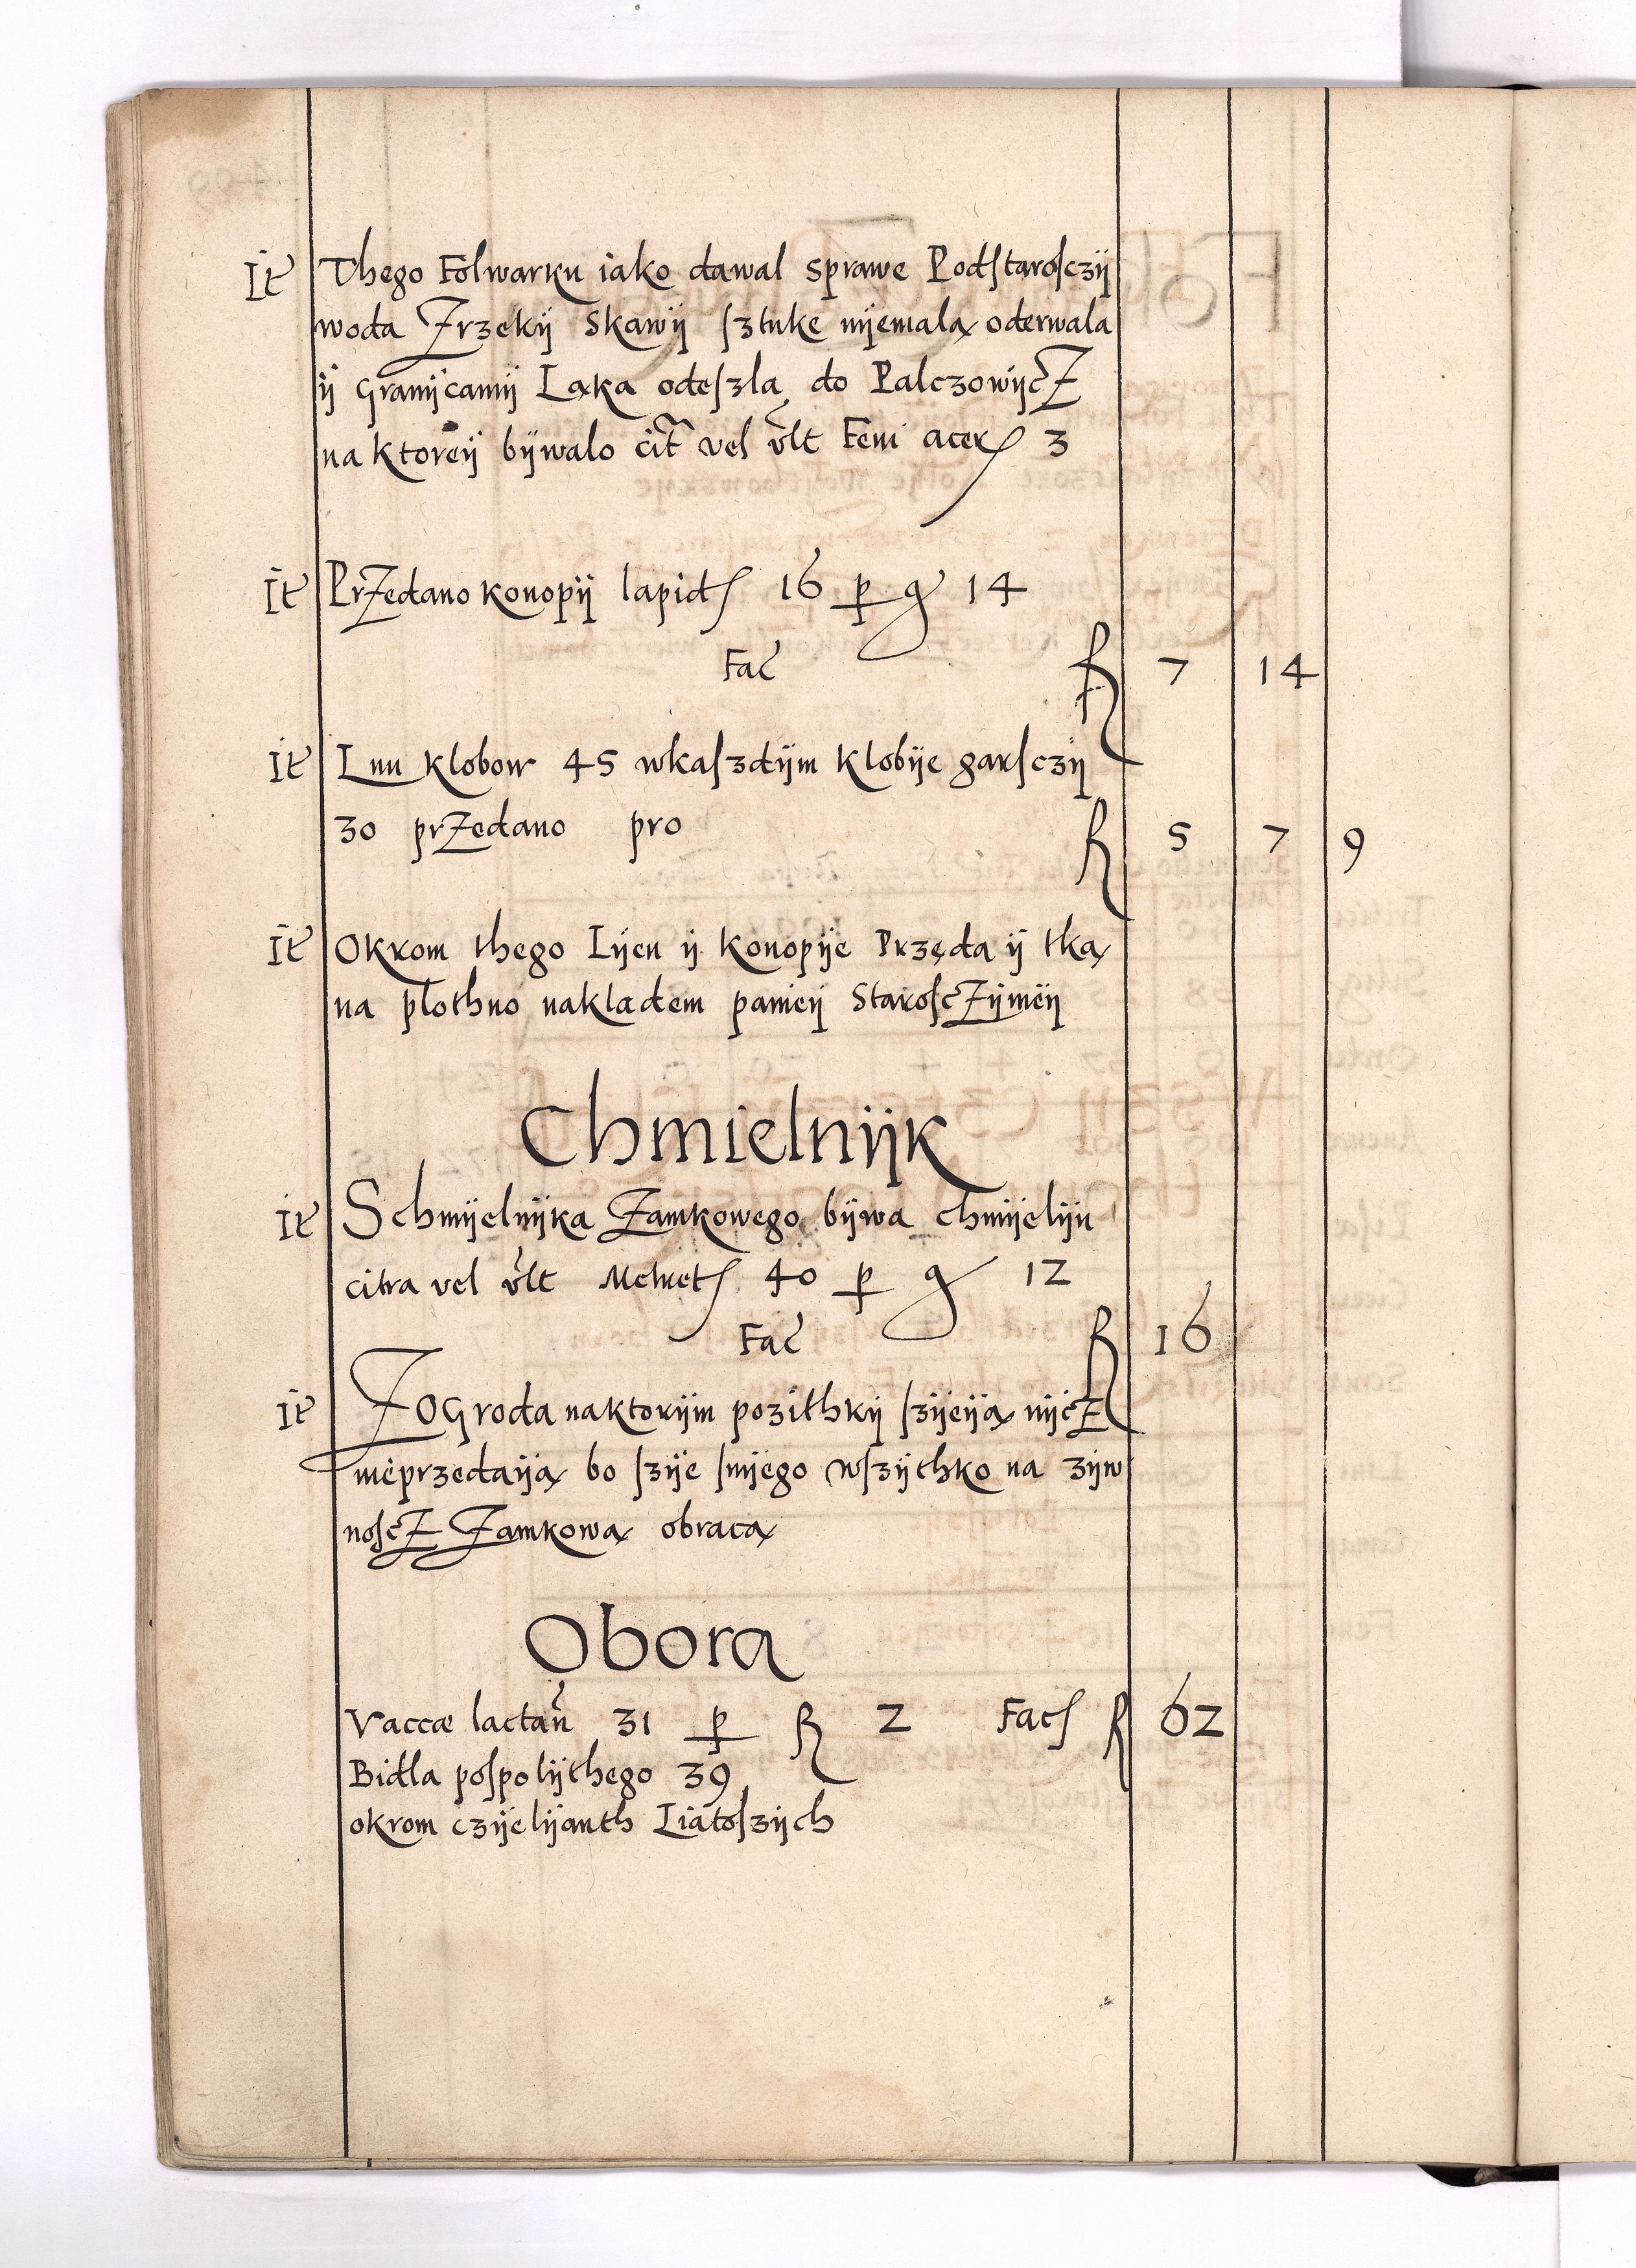 It Thego Folwarku iako dawal sprawe Podstarosczÿ
woda Zrzekÿ Skawÿ sztuke nÿemalą oderwala
ÿ Granÿcamÿ Ląka odeszla do PalczowÿcZ
na ktoreÿ bÿwalo cit vel vlt Feni acer 3
It PrZedano konopÿ lapid 16 p g 14
Fac R 7 14
It Lnu klobow 45 wkaszdÿm klobÿe garsczÿ
30 prZedano pro R 5 7 9
It Okrom thego Lÿen ÿ konopÿe Przęda ÿ tką
na plothno nakladem panieÿ StaroscZÿnieÿ
Chmielnÿk
It Schmÿelnÿka Zamkowego bÿwa chmÿelÿu
citra vel vlt Mehret 40 p g 12
Fac R 16
It ZOGroda naktorÿm pozithkÿ szÿeÿą nÿcZ
nieprzedaÿą bo szÿe snÿego wszÿthko na zÿw
noscZ Zamkową obracą
Obora
Vaccæ lactan 31 p R 2 Fac R 62
Bidla pospolÿthego 39
okrom czÿelÿanth Liatoszÿch